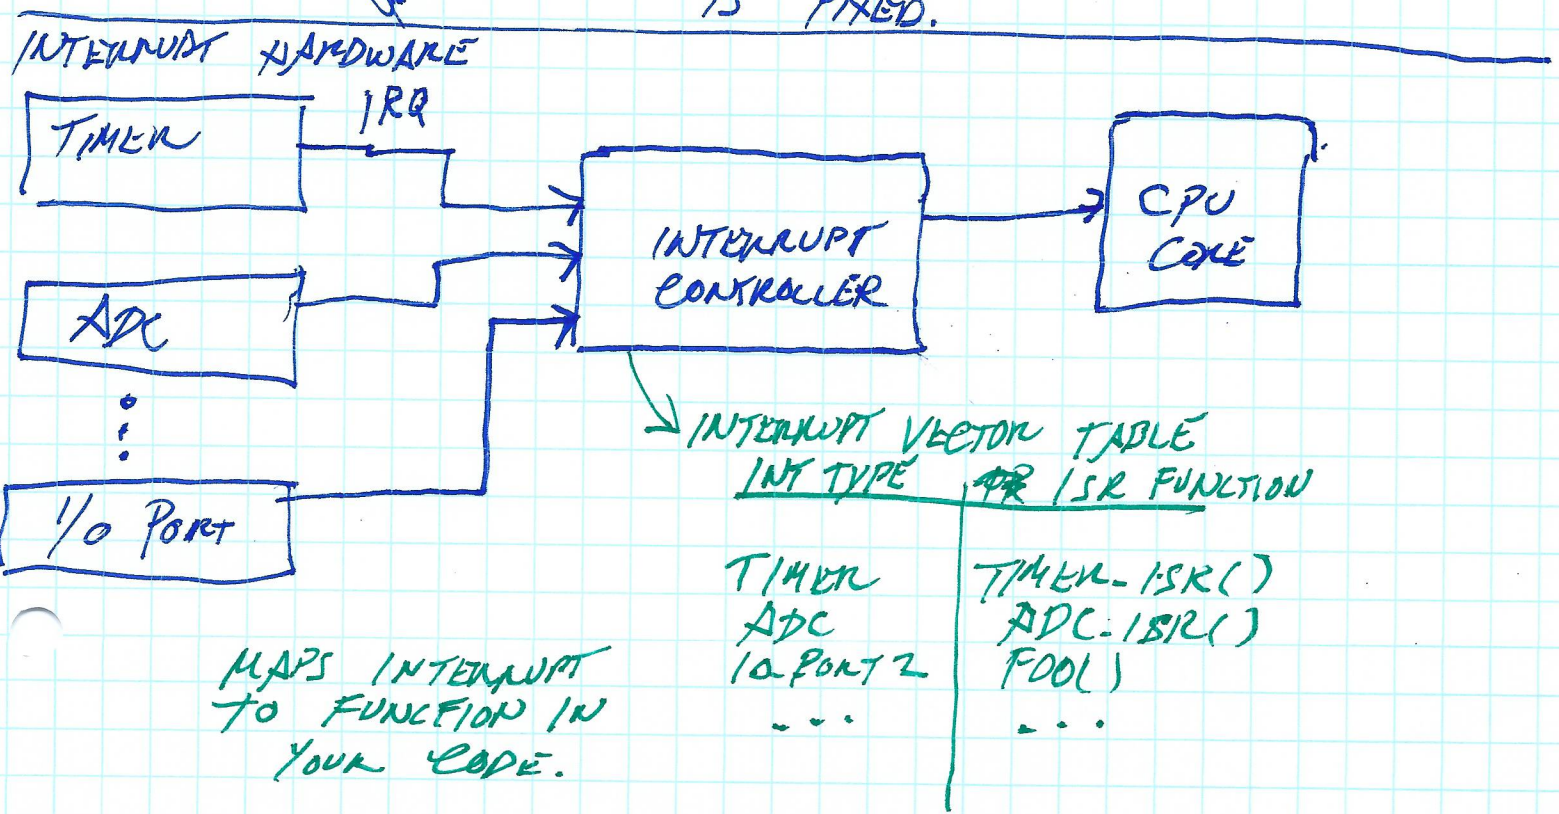 IS FIXED.
INTERRUPT HARDWARE
IRQ
TIMER
INTERRUPT
CONTROLLER
CPU
CORE
ADC
I/O PORT
INTERRUPT VECTOR TABLE
INT TYPE ISR FUNCTION
TIMER TIMER_ISR()
ADC ADC_ISR()
IO_PORT2 FOO()
... ...
MAPS INTERRUPT
TO FUNCTION IN
YOUR CODE.